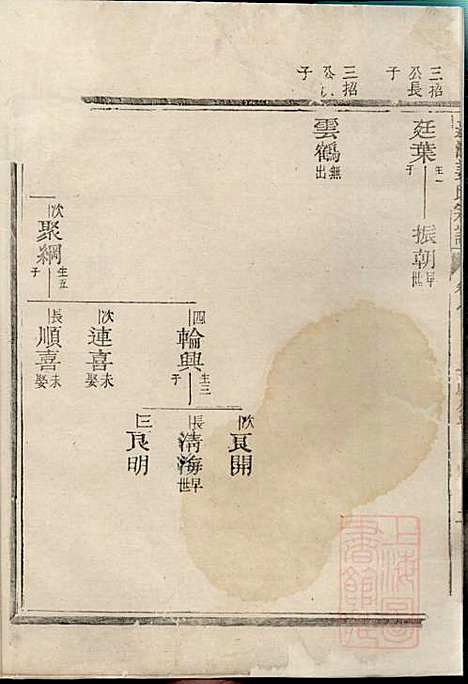 三招
公長
子
廷葉
生一
子
振朝
早世
三招
公
子
雲鶴
無出
次
聚綱
生五
子
四
輪興
生三
子
次
連喜
未娶
長
順喜
未娶
次
良開
長
清海
早世
三
良明
上海圖
書館藏